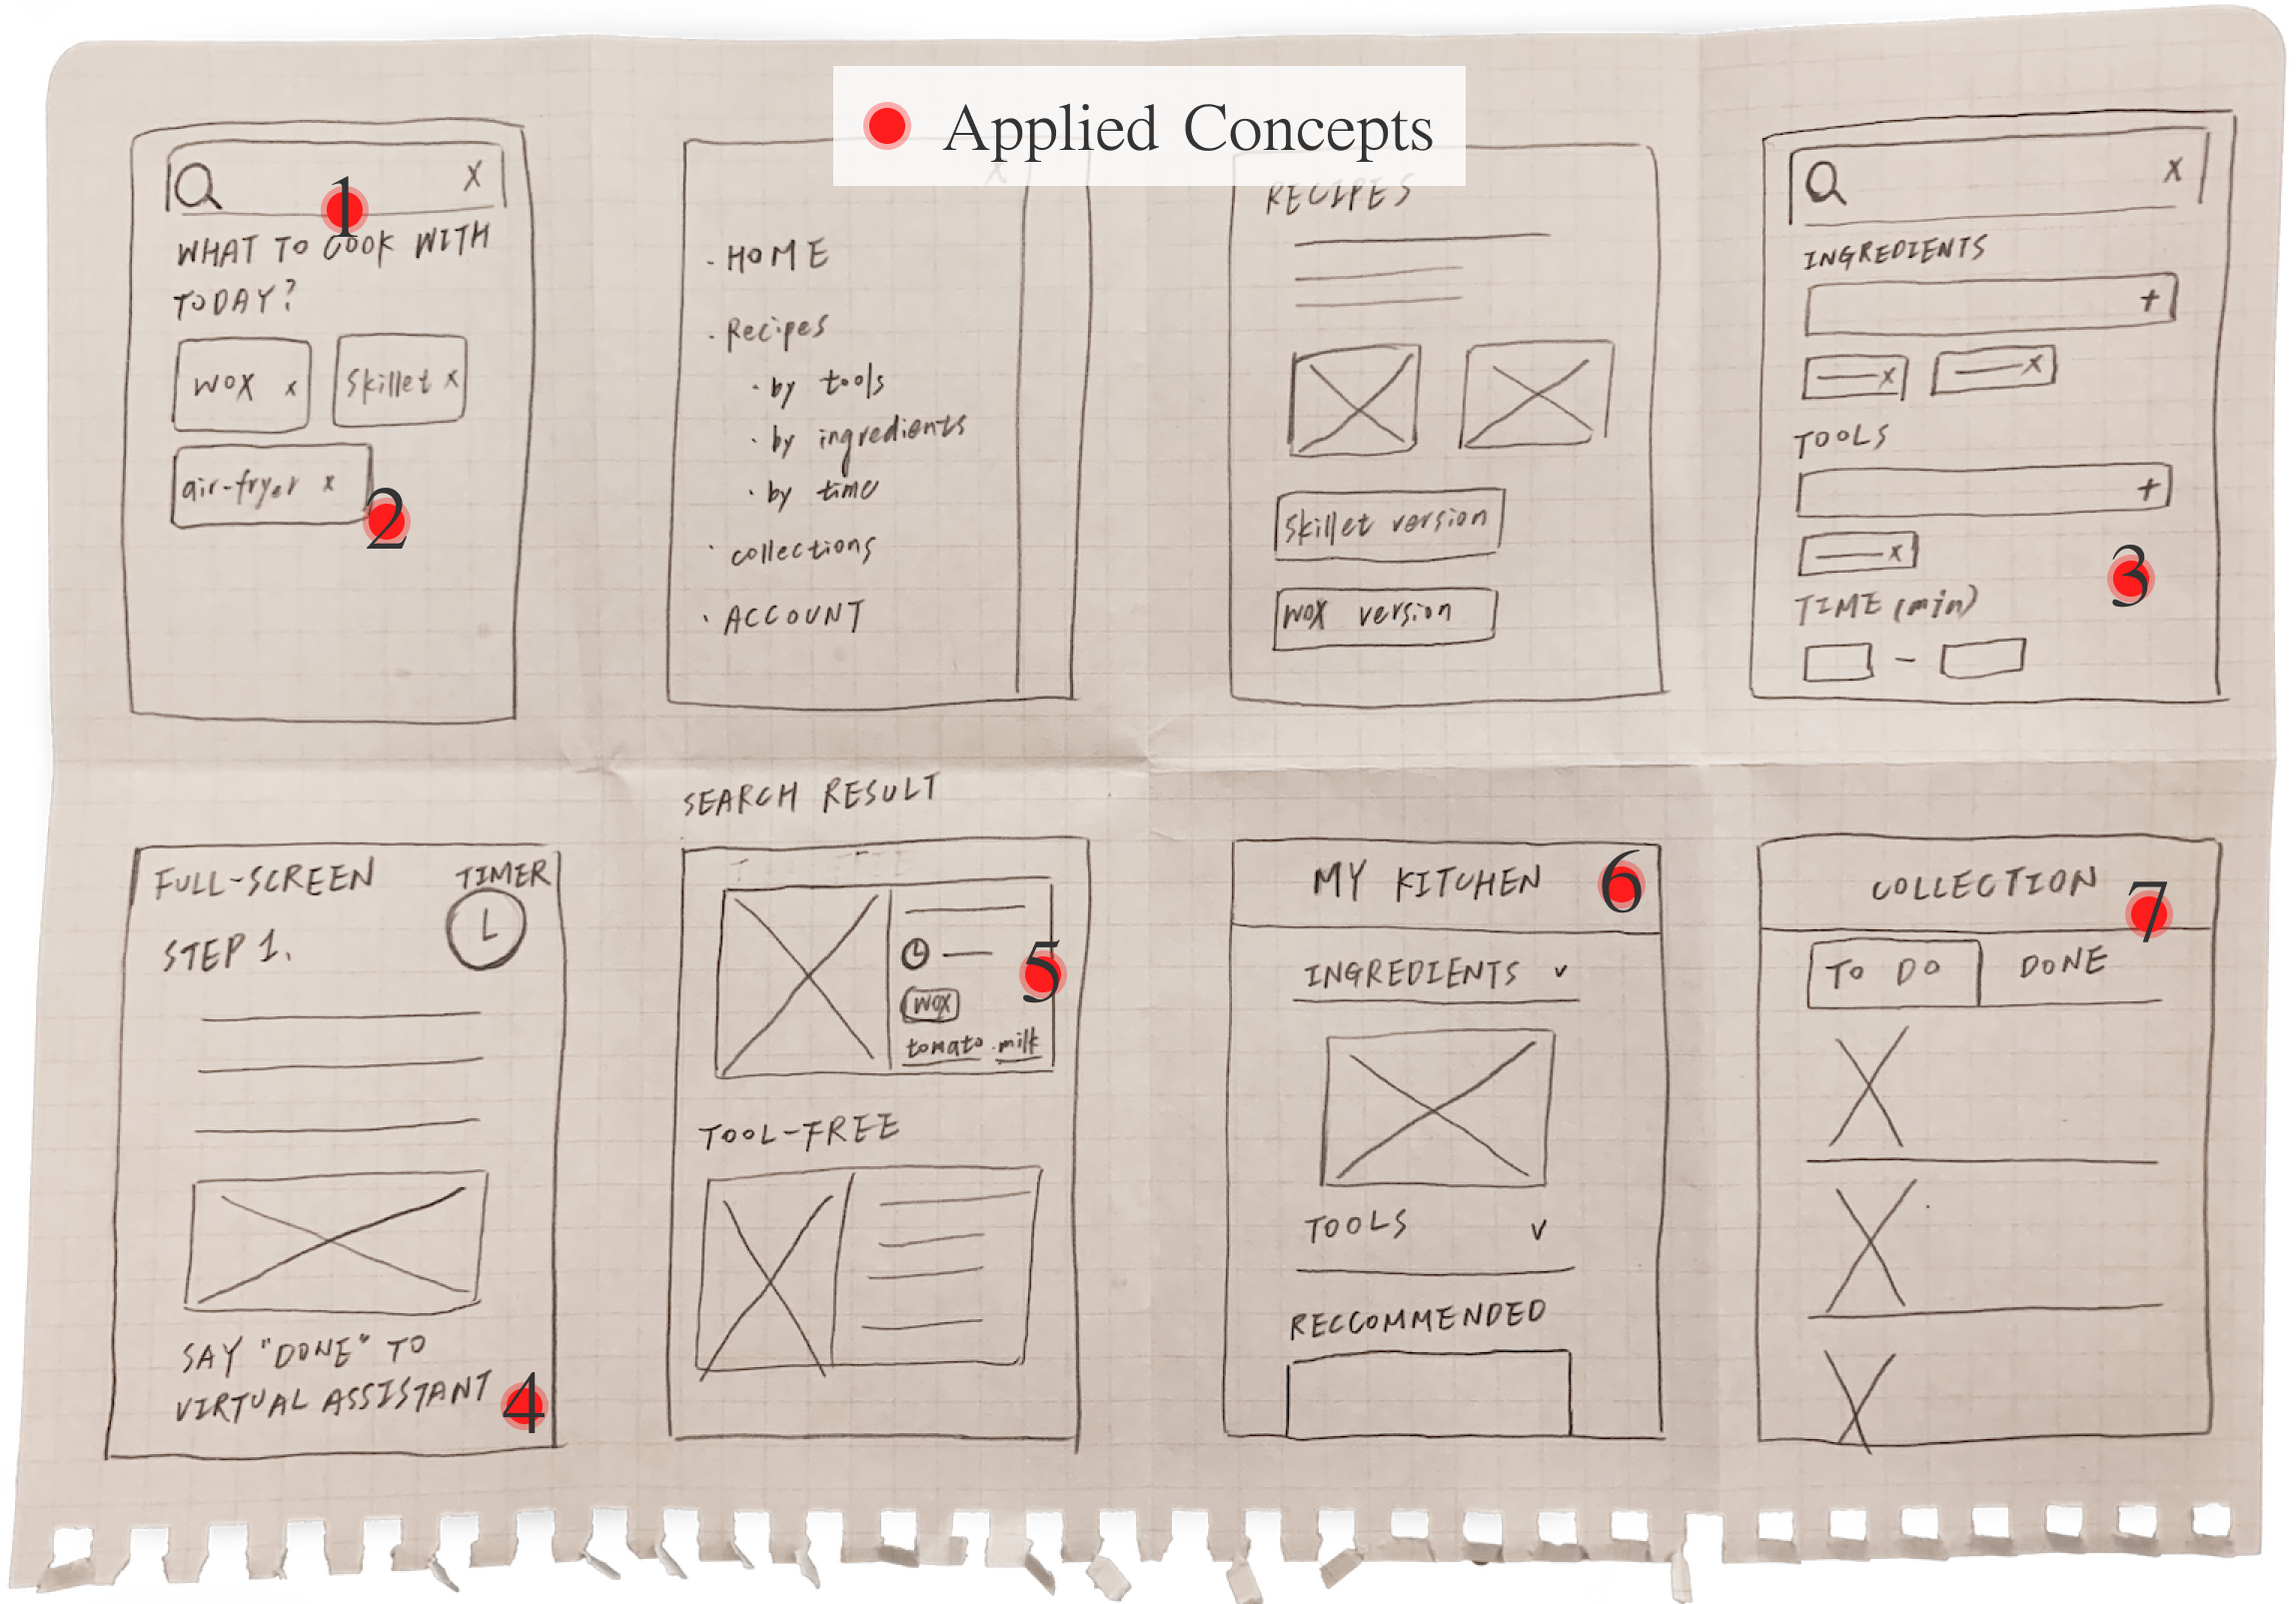 Applied Concepts
X
1
WHAT TO COOK WITH
TODAY?
WOX x
Skillet x
air-fryer x
2
X
· HOME
· Recipes
· by tools
· by ingredients
· by time
· collections
· ACCOUNT
RECIPES
Skillet version
WOX version
X
INGREDIENTS
+
x
x
TOOLS
+
x
3
TIME (min)
-
FULL-SCREEN
TIMER
STEP 1.
SAY "DONE" TO
VIRTUAL ASSISTANT
4
SEARCH RESULT
5
WOX
tomato milk
TOOL-FREE
MY KITCHEN
6
INGREDIENTS v
TOOLS v
RECCOMMENDED
COLLECTION
7
TO DO
DONE